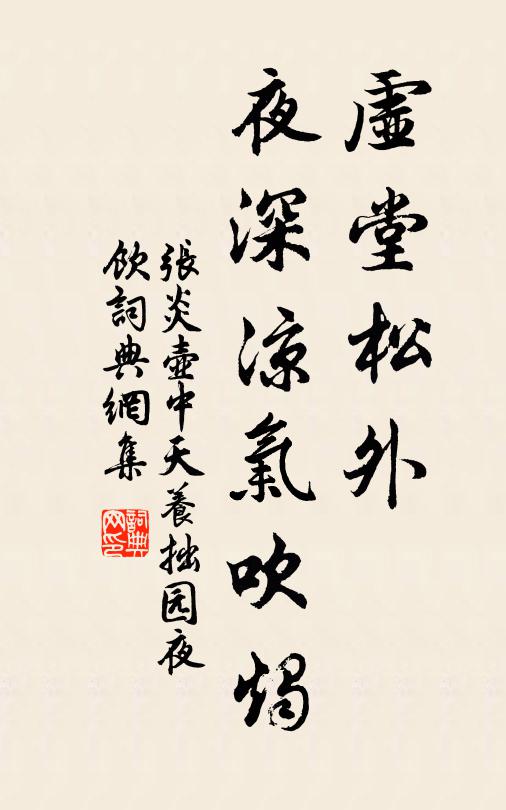 虛堂松外
夜深涼氣吹燭
張炎壺中天養拙园夜
飲詞典網集
詞典
网印